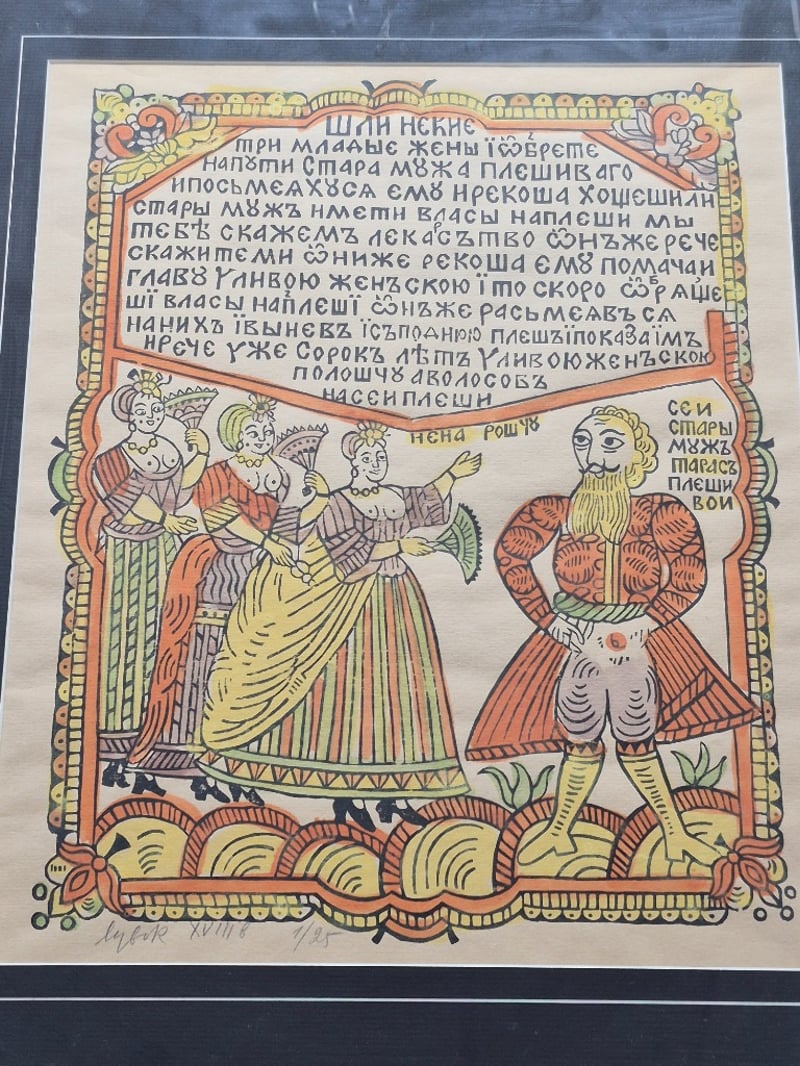 ШЛИ НЕКИЕ
ТРИ МЛАДЫЕ ЖЕНЫ ЇѾБРЕТЕ
НАПУТИ СТАРА МꙊЖА ПЛЕШИВАГО
ИПОСЬМЕЯХУСЯ ЕМУ ИРЕКОША ХОЩЕШИЛИ
СТАРЫ МꙊЖЪ ИМЕТИ ВЛАСЫ НАПЛЕШИ МЫ
ТЕБѢ СКАЖЕМЪ ЛЕКАРСЪТВО ѾНЪЖЕ РЕЧЕ
СКАЖИТЕМИ ѾНИЖЕ РЕКОША ЕМУ ПОМАЧАИ
ГЛАВꙊ УЛИВОЮ ЖЕНЪСКОЮ ЇТО СКОРО ѾБРЯЩЕ
ШЇ ВЛАСЫ НАПЛЕШЇ ѾНЪЖЕ РАСЬМЕЯВЪСЯ
НАНИХЪ ЇВЫНЕВЪ ЇСЪПОДНЮЮ ПЛЕШЪЇПОКАЗАЇМЪ
ИРЕЧЕ УЖЕ СОРОКЪ ЛѢТЪ УЛИВОЮЖЕНЪСКОЮ
ПОЛОЩЧꙊ АВОЛОСОВЪ
НАСЕИПЛЕШИ
НЕНА РОЩУ
СЕИ
СТАРЫ
МꙊЖЪ
ТАРАСЪ
ПЛЕШИ
ВОИ
1881
Лубок XVIII в 1/25